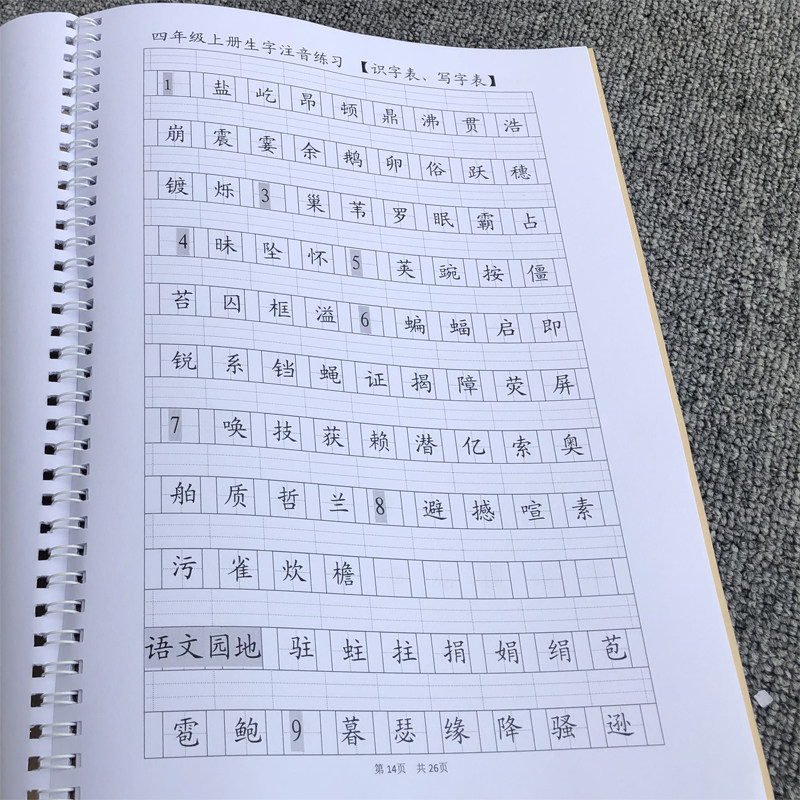 四年级上册生字注音练习 【识字表、写字表】
1 盐 屹 昂 顿 鼎 沸 贯 浩
崩 震 霎 余 鹅 卵 俗 跃 穗
镀 烁 3 巢 苇 罗 眠 霸 占
4 昧 坠 怀 5 荚 豌 按 僵
苔 囚 框 溢 6 蝙 蝠 启 即
锐 系 铛 蝇 证 揭 障 荧 屏
7 唤 技 获 赖 潜 亿 索 奥
舶 质 哲 兰 8 避 撼 喧 素
污 雀 炊 檐
语文园地 驻 蛀 拄 捐 娟 绢 苞
雹 鲍 9 暮 瑟 缘 降 骚 逊
第14页 共26页